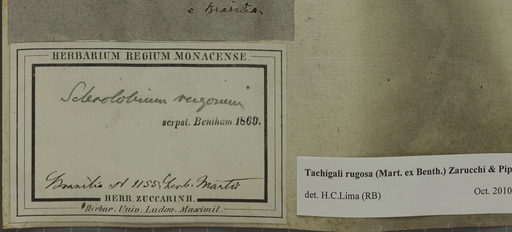 e Brasilia.
HERBARIUM REGIUM MONACENSE.
Sclerolobium rugosum
scrpsi. Bentham 1869.
Brasilia № 1155. Herb. Martii
HERB. ZUCCARINII.
Herbar. Univ. Ludov. Maximil.
Tachigali rugosa (Mart. ex Benth.) Zarucchi & Pip
det. H.C.Lima (RB)
Oct. 2010